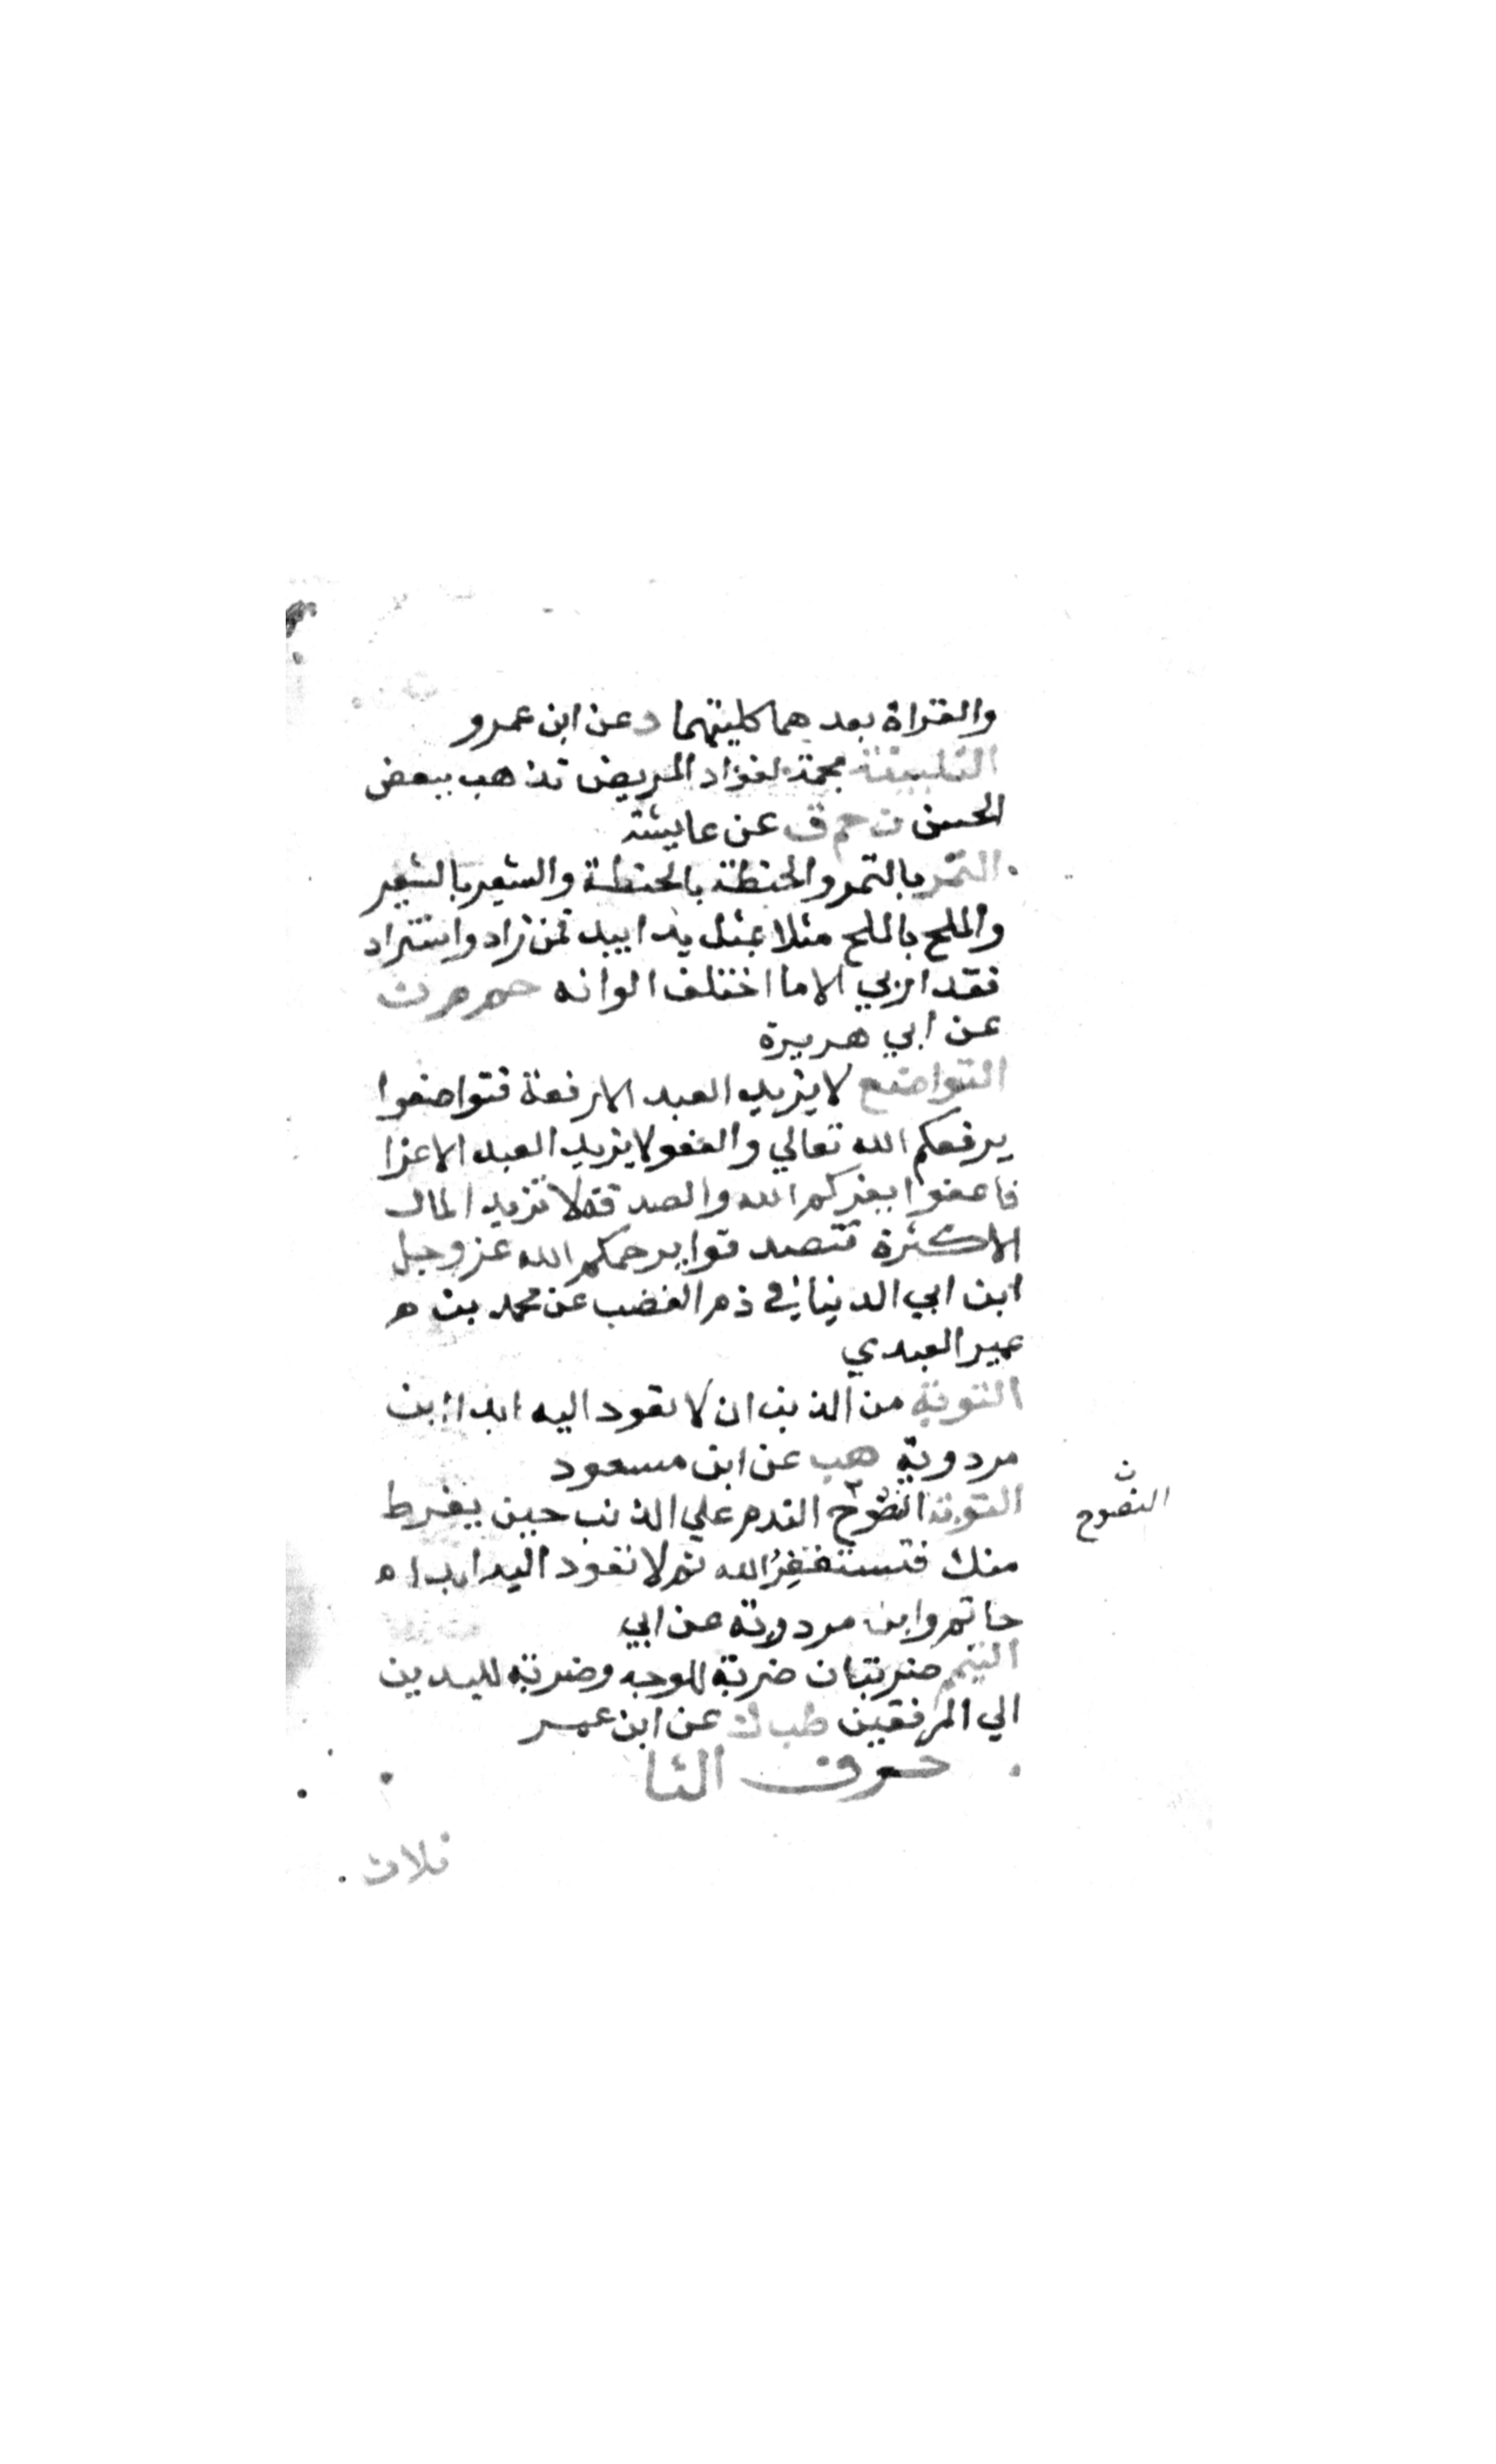 والقراة بعدهما كليتهما د عن ابن عمرو
التلبينة مجمة لفؤاد المريض تذهب ببعض
الحسن ن حم ق عن عايشة
التمر بالتمر والحنطة بالحنطة والشعير بالشعير
والملح بالملح مثلا بمثل يدا بيد فمن زاد واستزاد
فقد اربي الا ما اختلف الوانه حم م ن
عن ابي هريرة
التواضع لا يزيد العبد الا رفعة فتواضعوا
يرفعكم الله تعالي والعفو لا يزيد العبد الا عزا
فاعفوا يعزكم الله والصدقة لا تزيد المال
الا كثرة فتصدقوا يرحمكم الله عز وجل
ابن ابي الدنيا في ذم الغضب عن محمد بن ه
عمير العبدي
التوبة من الذنب ان لا تعود اليه ابدا ابن
مردوية هب عن ابن مسعود
التوبة النضوح الندم علي الذنب حين يفرط
ن
النصوح
منك فتستغفِرُ الله ثم لا تعود اليه ابدا ه
حاتم وابن مردوية عن ابي
التيمم ضربتان ضربة للوجه وضربة لليدين
الي المرفقين طب ك عن ابن عمر
حرف الثا
ثلاث